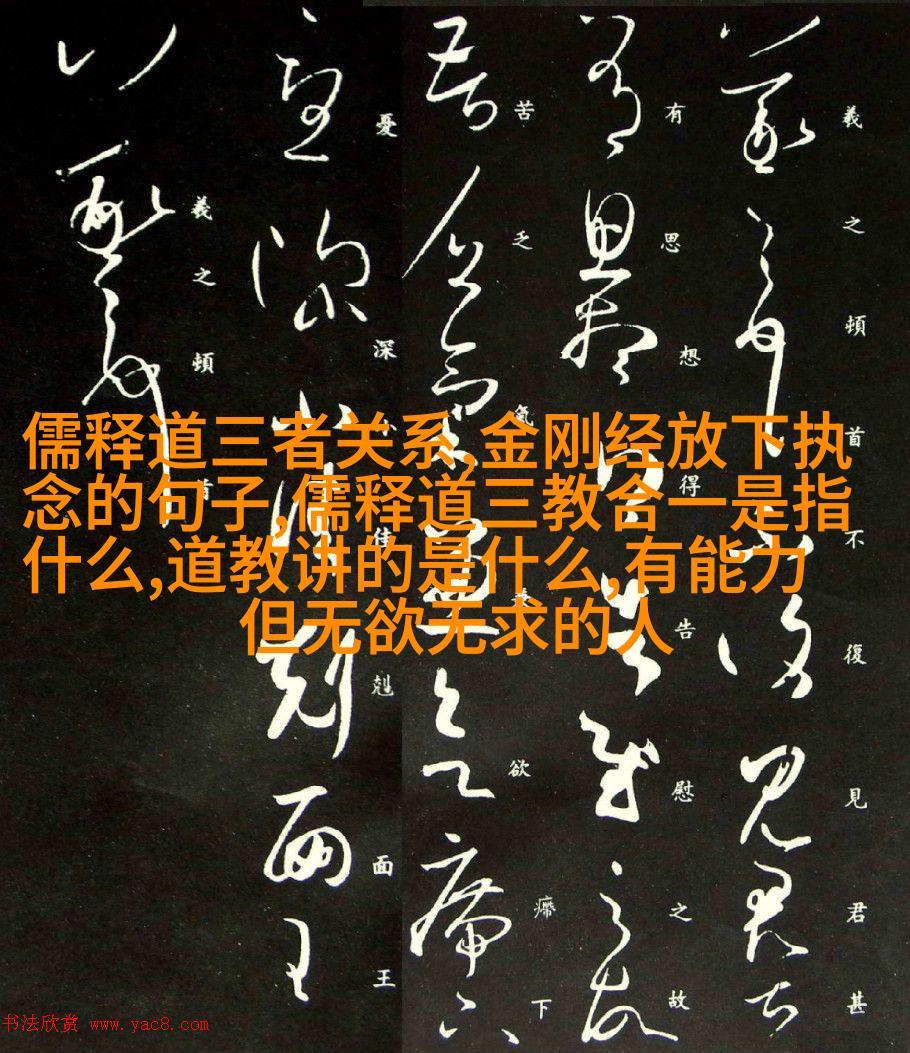 儒释道三者关系,金刚经放下执
念的句子,儒释道三教合一是指
什么,道教讲的是什么,有能力
但无欲无求的人
羲之頓首不復見君甚
有思想得告慰之故
苦乏氣欲㿃下
憂深佳尅面王
羲之頓首
书法欣赏 www.yac8.com